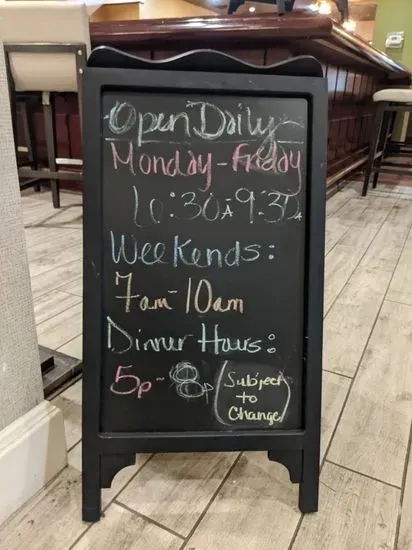 Open Daily
Monday-Friday
6:30A 9:30A
Weekends:
7am-10am
Dinnur Hours:
5p-8p
Subject
to
Change